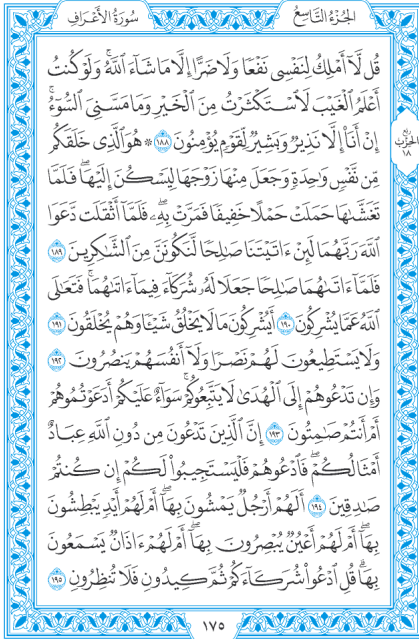 الجُزْءُ التَّاسِعُ سُورَةُ الأَعْرَافِ
قُل لَّآ أَمْلِكُ لِنَفْسِى نَفْعًا وَلَا ضَرًّا إِلَّا مَا شَآءَ ٱللَّهُ ۚ وَلَوْ كُنتُ
أَعْلَمُ ٱلْغَيْبَ لَٱسْتَكْثَرْتُ مِنَ ٱلْخَيْرِ وَمَا مَسَّنِىَ ٱلسُّوٓءُ ۚ
إِنْ أَنَا۠ إِلَّا نَذِيرٌ وَبَشِيرٌ لِّقَوْمٍ يُؤْمِنُونَ ١٨٨ ۞ هُوَ ٱلَّذِى خَلَقَكُم
مِّن نَّفْسٍ وَٰحِدَةٍ وَجَعَلَ مِنْهَا زَوْجَهَا لِيَسْكُنَ إِلَيْهَا ۖ فَلَمَّا
تَغَشَّىٰهَا حَمَلَتْ حَمْلًا خَفِيفًا فَمَرَّتْ بِهِۦ ۖ فَلَمَّآ أَثْقَلَت دَّعَوَا
ٱللَّهَ رَبَّهُمَا لَئِنْ ءَاتَيْتَنَا صَٰلِحًا لَّنَكُونَنَّ مِنَ ٱلشَّٰكِرِينَ ١٨٩
فَلَمَّآ ءَاتَىٰهُمَا صَٰلِحًا جَعَلَا لَهُۥ شُرَكَآءَ فِيمَآ ءَاتَىٰهُمَا ۚ فَتَعَٰلَى
ٱللَّهُ عَمَّا يُشْرِكُونَ ١٩٠ أَيُشْرِكُونَ مَا لَا يَخْلُقُ شَيْـًٔا وَهُمْ يُخْلَقُونَ ١٩١
وَلَا يَسْتَطِيعُونَ لَهُمْ نَصْرًا وَلَآ أَنفُسَهُمْ يَنصُرُونَ ١٩٢
وَإِن تَدْعُوهُمْ إِلَى ٱلْهُدَىٰ لَا يَتَّبِعُوكُمْ ۚ سَوَآءٌ عَلَيْكُمْ أَدَعَوْتُمُوهُمْ
أَمْ أَنتُمْ صَٰمِتُونَ ١٩٣ إِنَّ ٱلَّذِينَ تَدْعُونَ مِن دُونِ ٱللَّهِ عِبَادٌ
أَمْثَالُكُمْ ۖ فَٱدْعُوهُمْ فَلْيَسْتَجِيبُوا۟ لَكُمْ إِن كُنتُمْ
صَٰدِقِينَ ١٩٤ أَلَهُمْ أَرْجُلٌ يَمْشُونَ بِهَآ ۖ أَمْ لَهُمْ أَيْدٍ يَبْطِشُونَ
بِهَآ ۖ أَمْ لَهُمْ أَعْيُنٌ يُبْصِرُونَ بِهَآ ۖ أَمْ لَهُمْ ءَاذَانٌ يَسْمَعُونَ
بِهَا ۗ قُلِ ٱدْعُوا۟ شُرَكَآءَكُمْ ثُمَّ كِيدُونِ فَلَا تُنظِرُونِ ١٩٥
ربع
الحزب
١٨
١٧٥